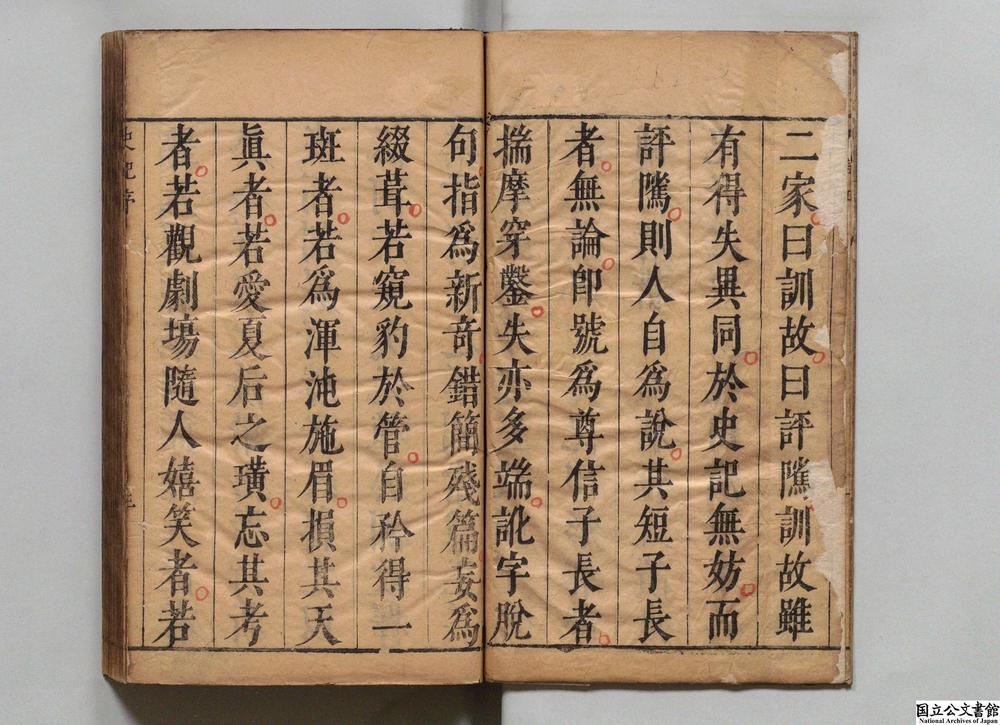 二家曰訓故曰評隲訓故雖
有得失異同於史記無妨而
評隲則人自爲說其短子長
者無論卽號爲尊信子長者
揣摩穿鑿失亦多端訛字脫
句指爲新奇錯簡殘篇妄爲
綴葺若窺豹於管自矜得一
斑者若爲渾沌施眉損其天
眞者若愛夏后之璜忘其考
者若觀劇場隨人嬉笑者若
史記序
国立公文書館
National Archives of Japan